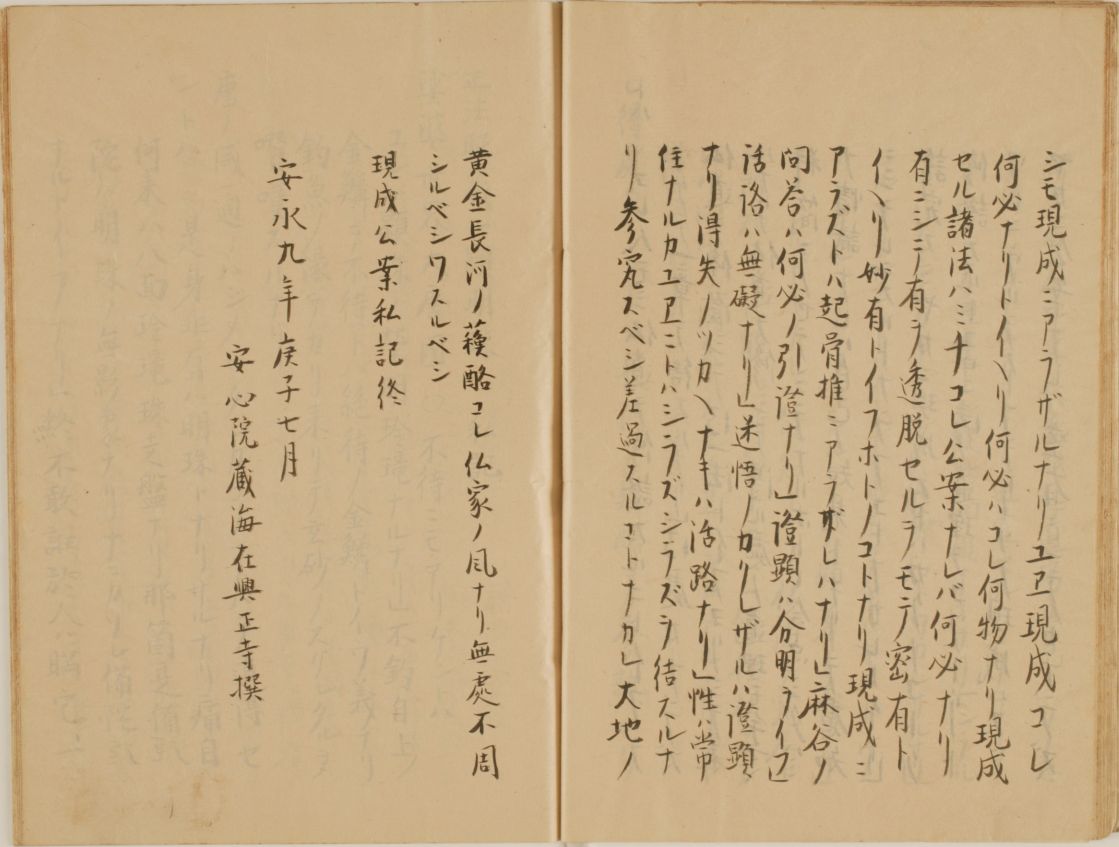 シモ現成ニアラザルナリユヱ現成コレ
何必ナリトイヘリ何必ハコレ何物ナリ現成
セル諸法ハミナコレ公案ナレバ何必ナリ
有ニシテ有ヲ透脱セルヲモテ密有ト
イヘリ妙有トイフホトノコトナリ現成ニ
アラズトハ起骨推ニアラザレハナリ」麻谷ノ
問答ハ何必ノ引證ナリ」證顕ハ分明ヲイフ」
活路ハ無礙ナリ」迷悟ノカカレザルハ證顕
ナリ得失ノツカヘナキハ活路ナリ」性ハ常
住ナルカユヱニトハシラズシラズヲ結スルナ
リ参究スベシ差過スルコトナカレ大地ノ
黄金長河ノ蘓酪コレ仏家ノ風ナリ無處不周
シルベシワスルベシ
現成公案私記終
安永九年庚子七月
安心院蔵海在興正寺撰